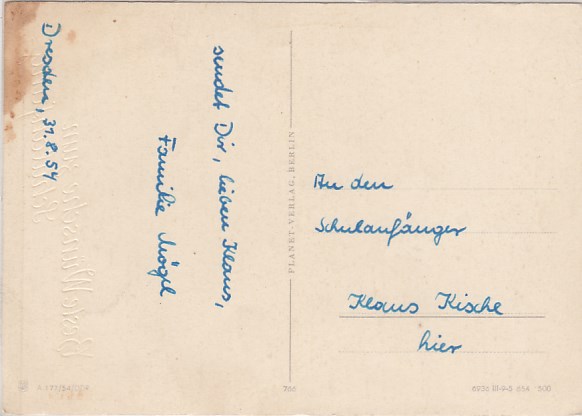 Dresden, 31.8.54
sendet Dir, lieben Klaus,
Familie Mögel.
PLANET-VERLAG, BERLIN
An den
Schulanfänger
Klaus Kische
hier
788
6936 III-9-5 654 500